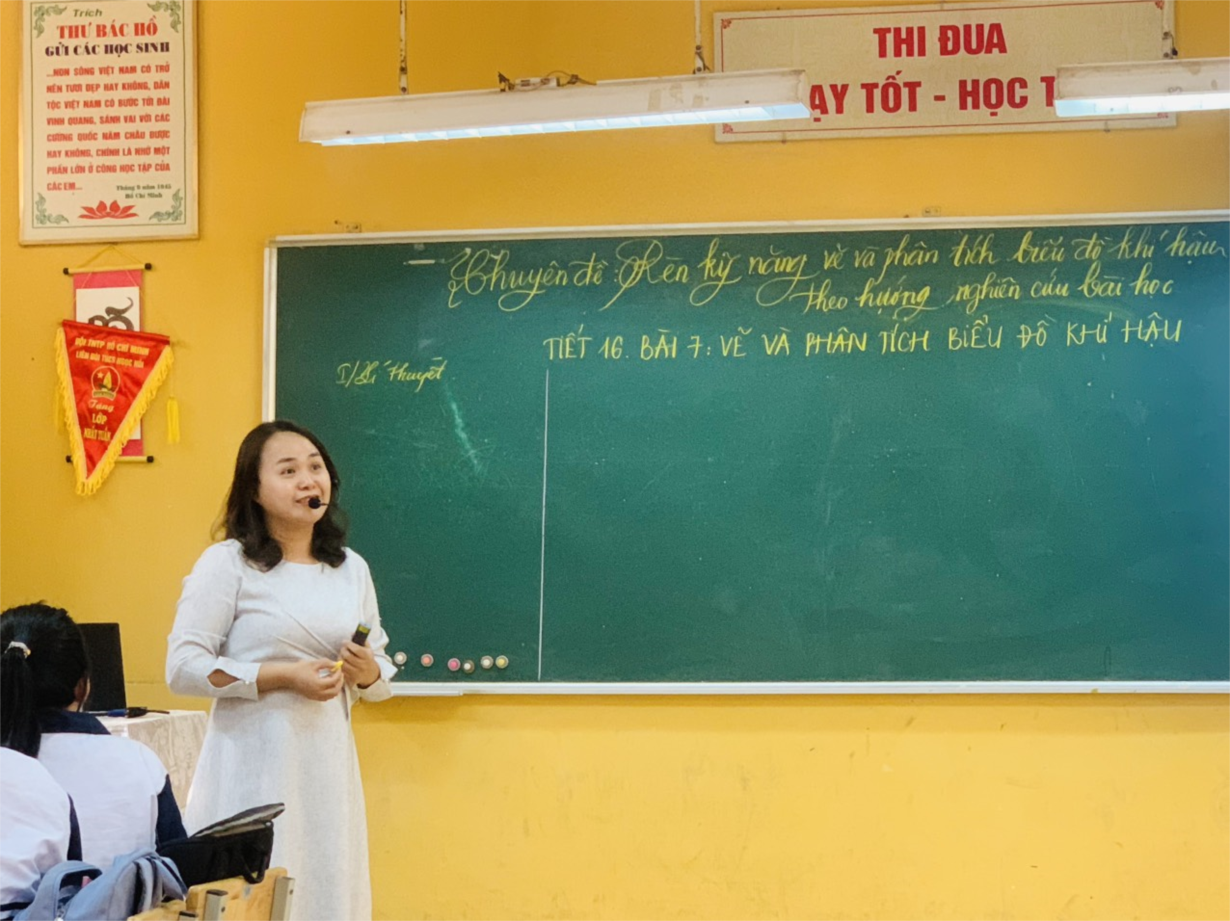 Trích
THƯ BÁC HỒ
GỬI CÁC HỌC SINH
...NON SÔNG VIỆT NAM CÓ TRỞ
NÊN TƯƠI ĐẸP HAY KHÔNG, DÂN
TỘC VIỆT NAM CÓ BƯỚC TỚI ĐÀI
VINH QUANG, SÁNH VAI VỚI CÁC
CƯỜNG QUỐC NĂM CHÂU ĐƯỢC
HAY KHÔNG, CHÍNH LÀ NHỜ MỘT
PHẦN LỚN Ở CÔNG HỌC TẬP CỦA
CÁC EM...
Tháng 9 năm 1945
Hồ Chí Minh
THI ĐUA
ẠY TỐT - HỌC T
Chuyên đề: Rèn kỹ năng vẽ và phân tích biểu đồ khí hậu
theo hướng nghiên cứu bài học
TIẾT 16. BÀI 7: VẼ VÀ PHÂN TÍCH BIỂU ĐỒ KHÍ HẬU
I/ Lí thuyết
ĐỘI TNTP HỒ CHÍ MINH
LIÊN ĐỘI THCS NGỌC HỒI
Tặng
LỚP
NHẤT TUẦN